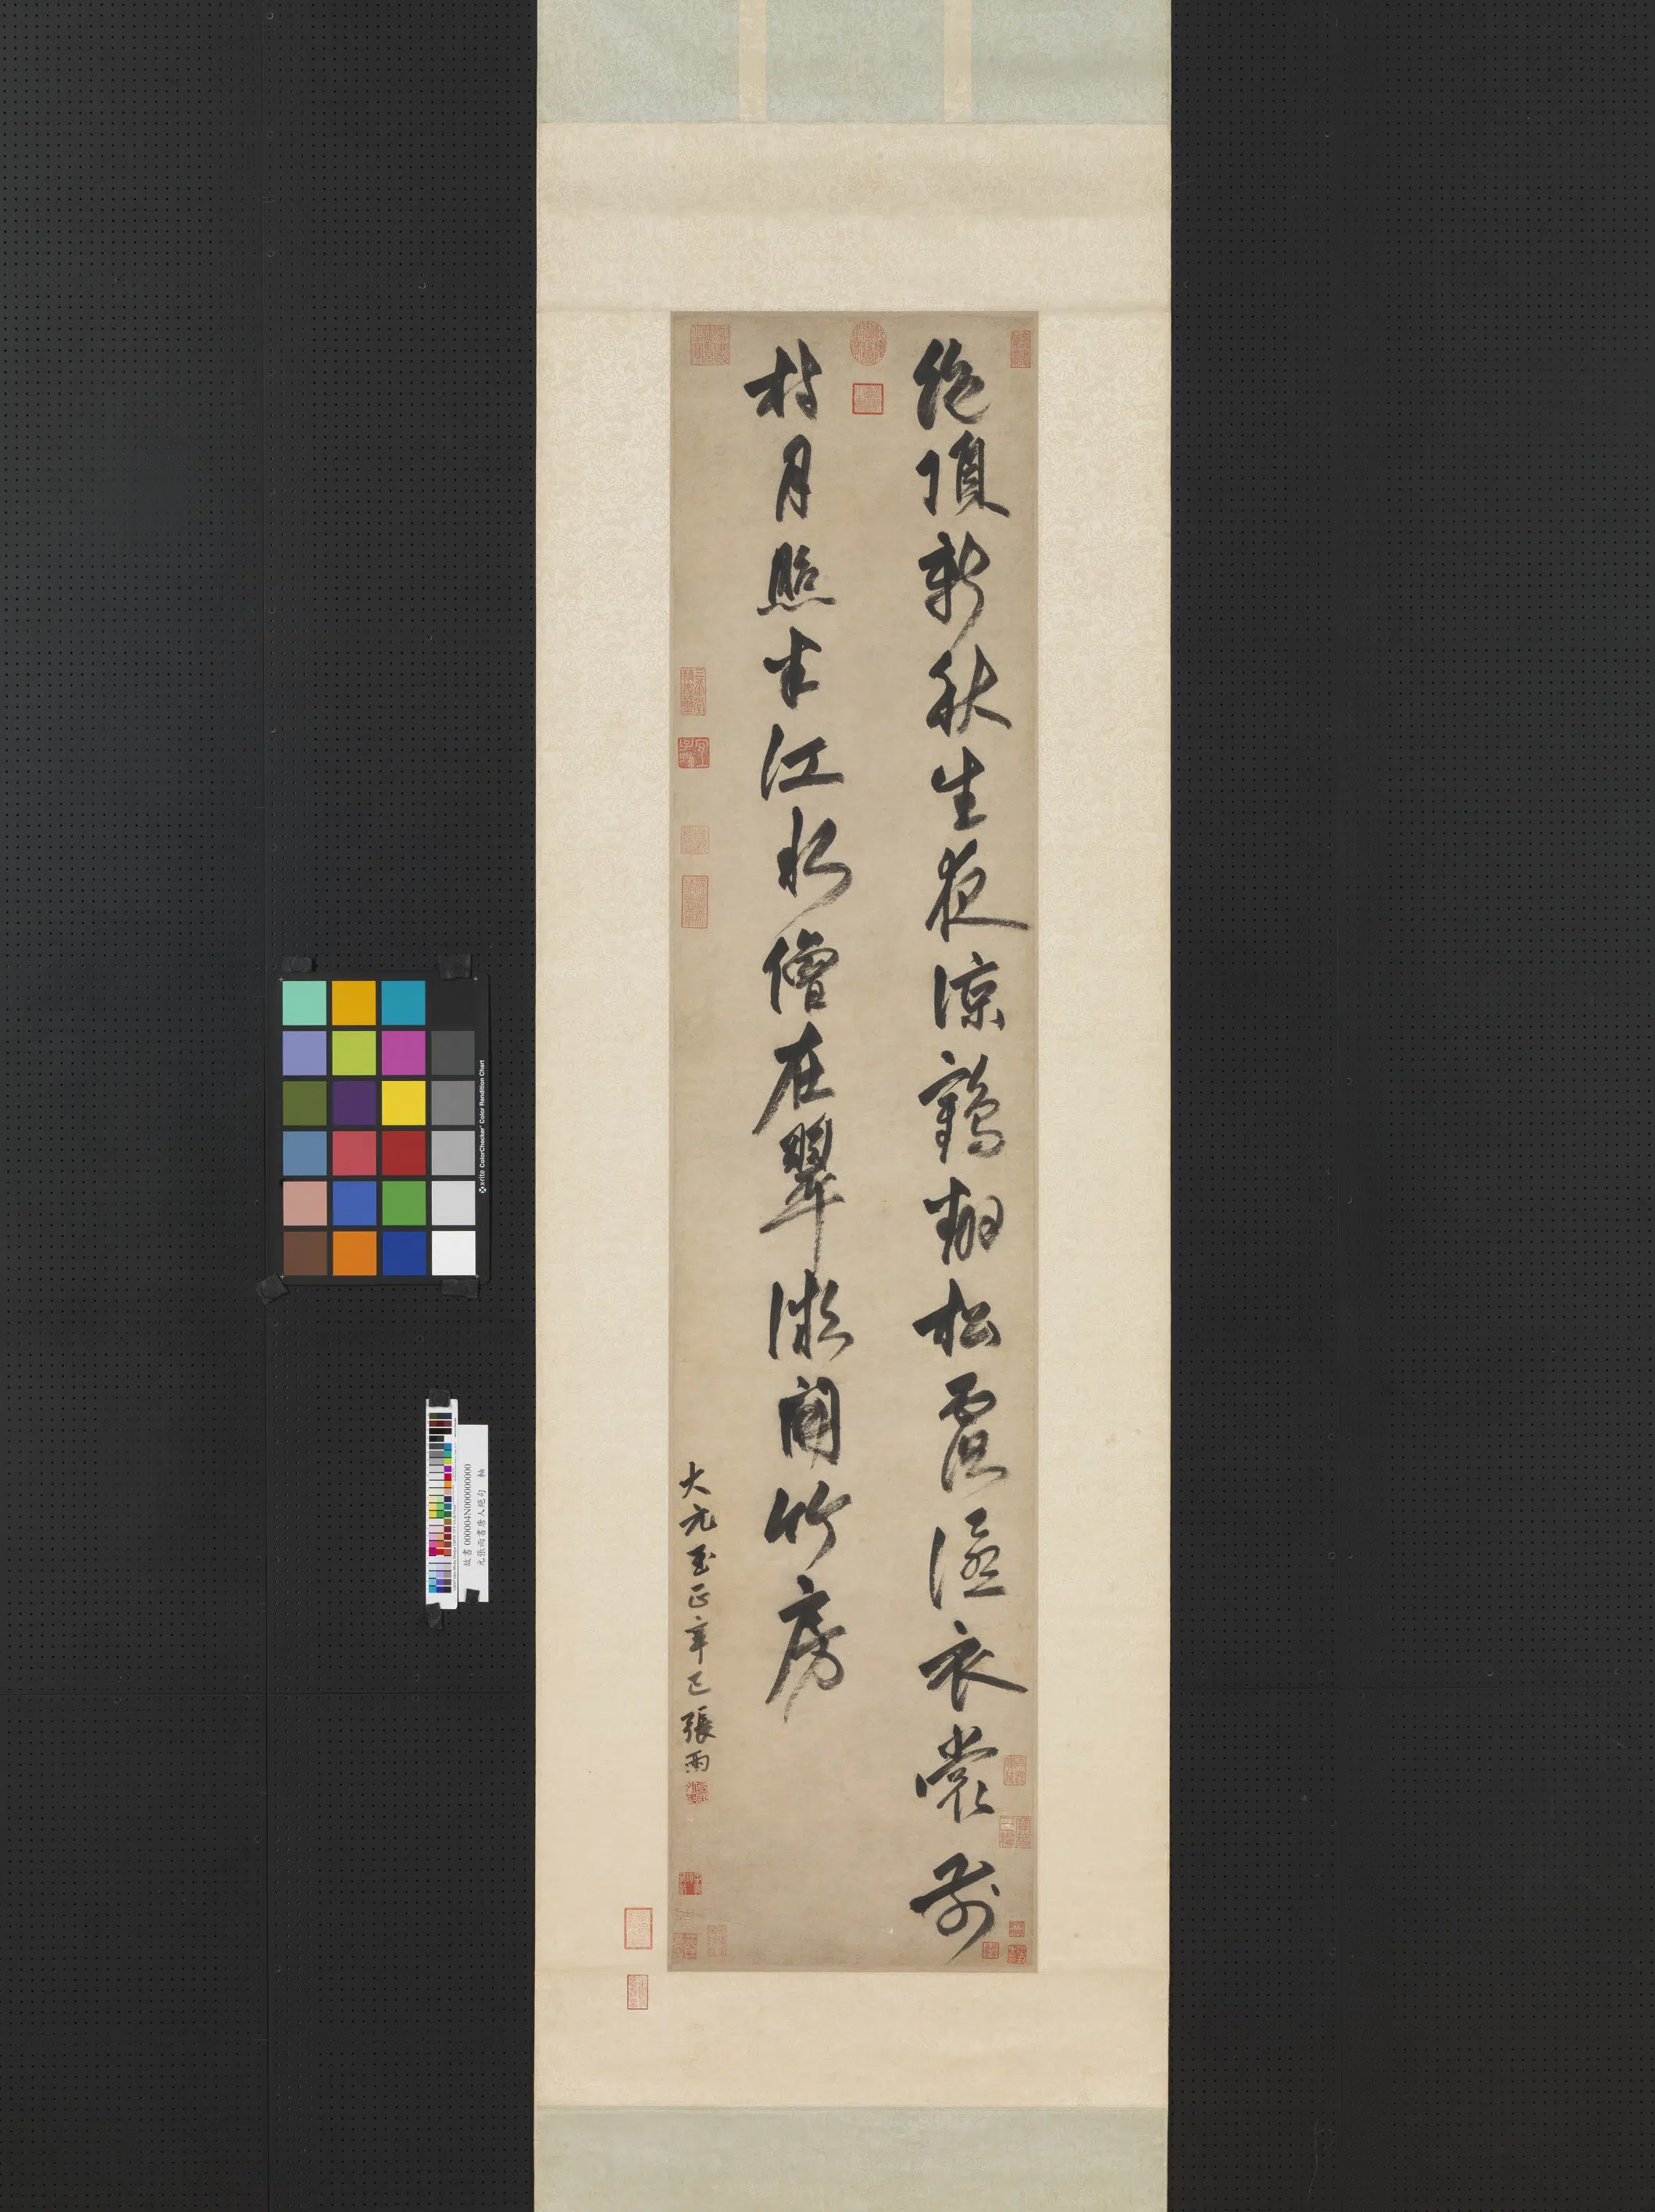 絕頂新秋生夜涼鶴翻松露溼衣裳前
村月照半江水僧在翠微開竹房
大元至正辛巳張雨
x-rite ColorChecker Color Rendition Chart
故書 000004N000000000
元張雨書唐人絕句 軸